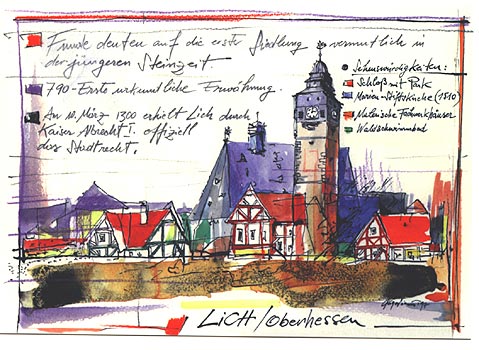 Funde deuten auf die erste Siedlung vermutlich in
der jüngeren Steinzeit.
790-Erste urkundliche Erwähnung.
An 10. März 1300 erhielt Lich durch
Kaiser Albrecht I. offiziell
das Stadtrecht.
Sehenswürdigkeiten:
Schloß mit Park
Marien-Stiftskirche (1510)
Malerische Fachwerkhäuser
Waldschwimmbad
LiCH/Oberhessen